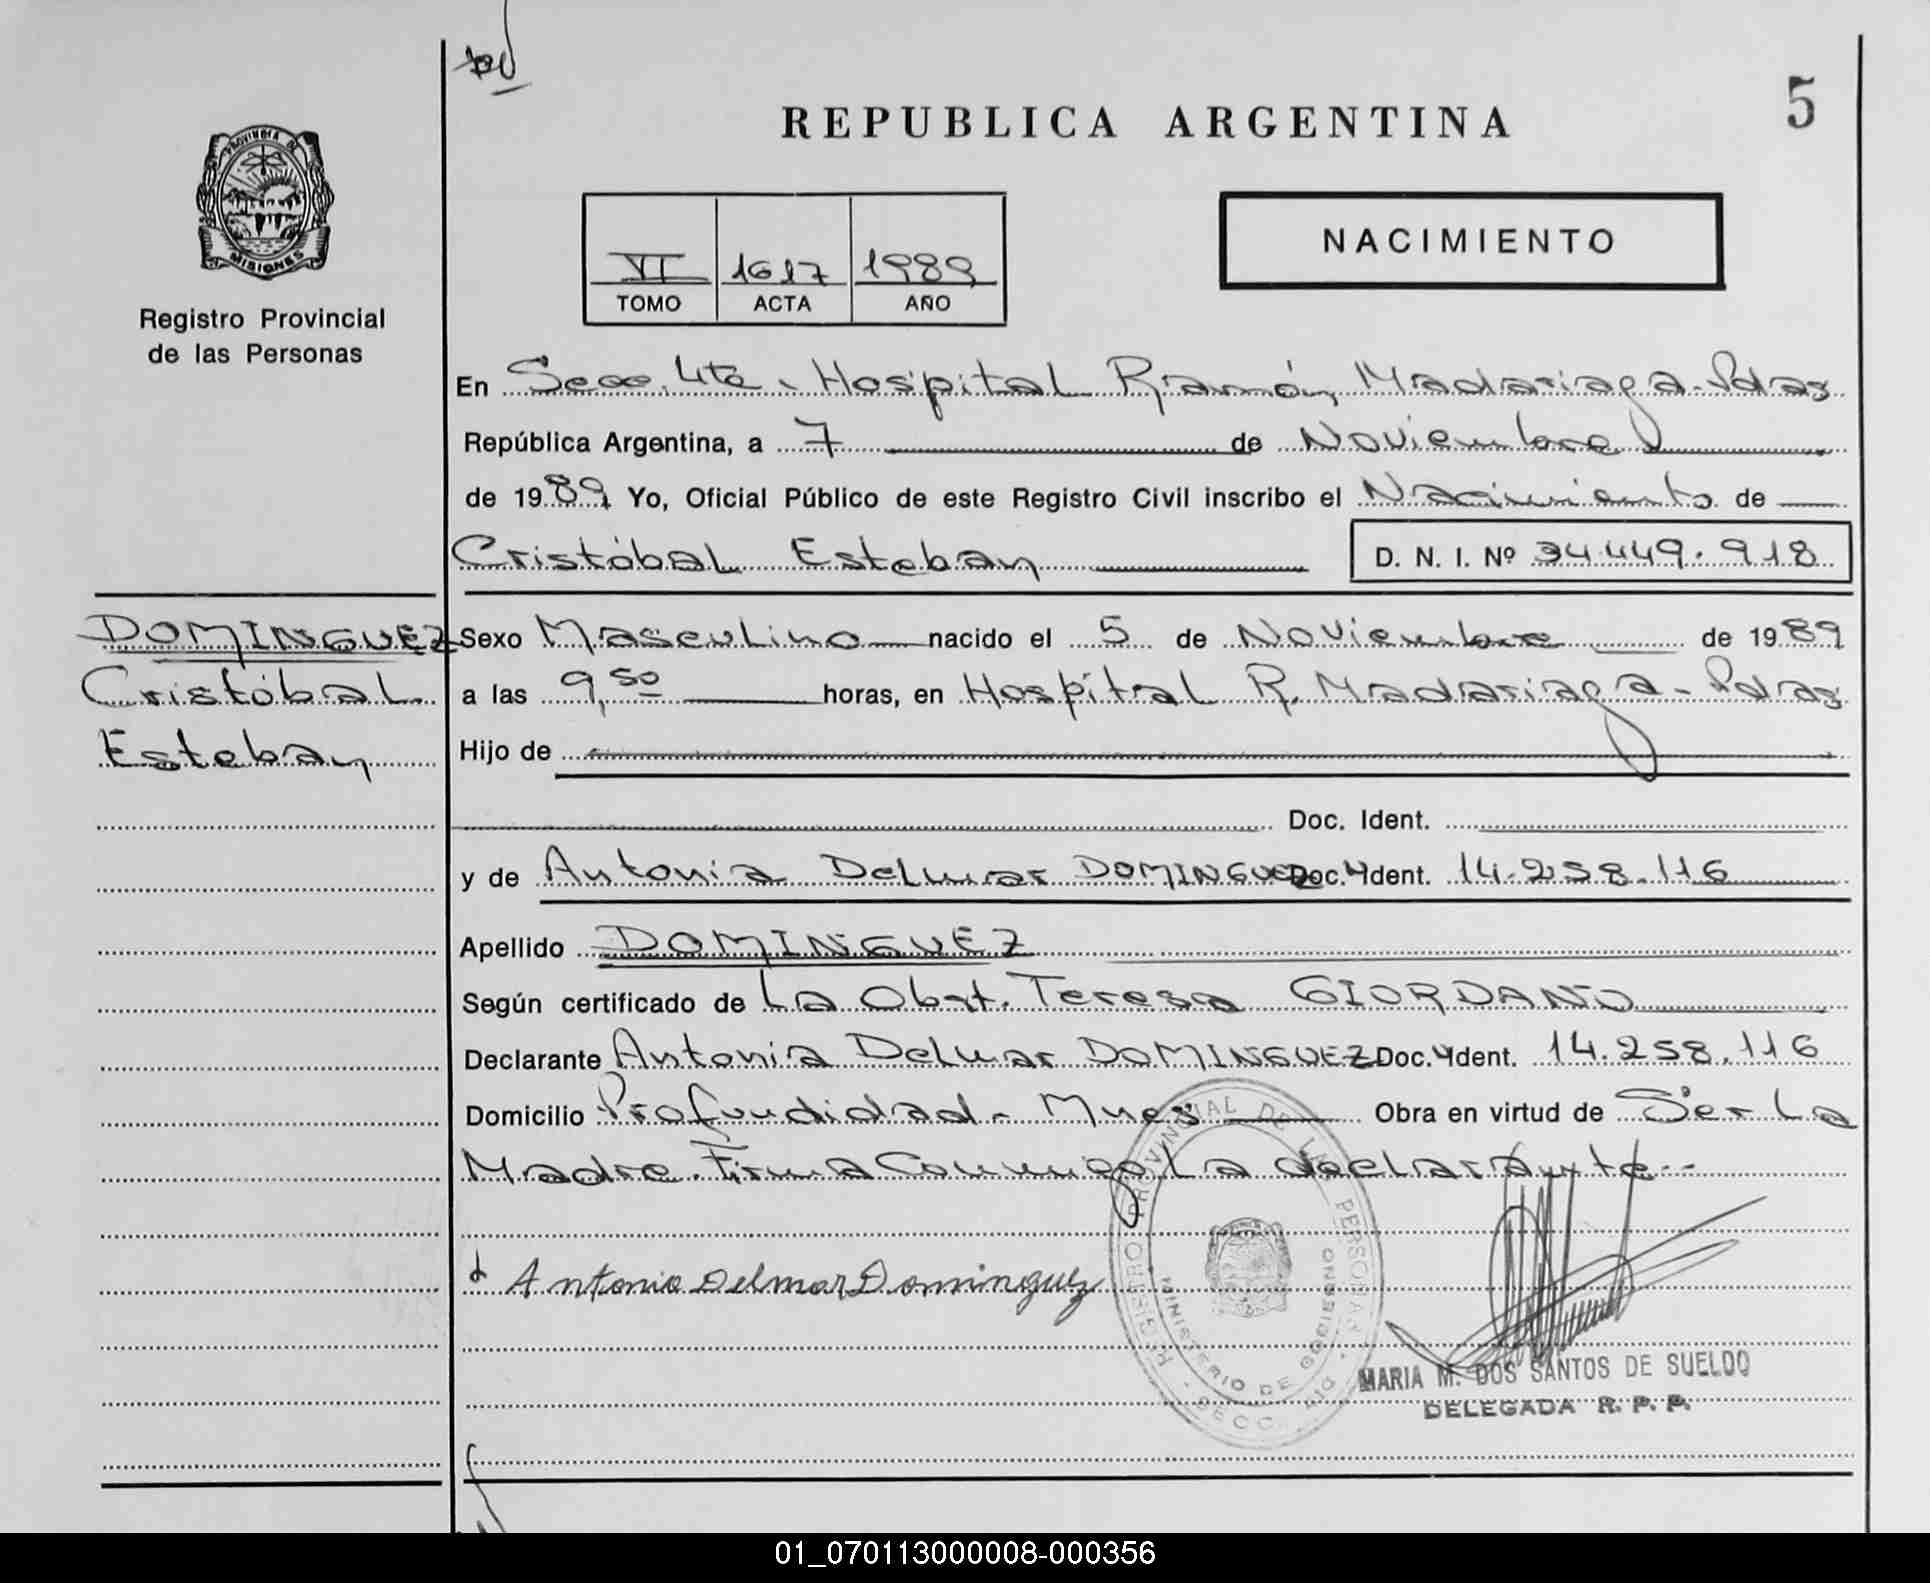 5
REPUBLICA ARGENTINA
PROVINCIA DE
MISIONES
Registro Provincial
de las Personas
NACIMIENTO
VI 1617 1989
TOMO ACTA AÑO
En Secc. 4ta. Hospital Ramón Madariaga - Pdas
República Argentina, a 7 de Noviembre
de 1989 Yo, Oficial Público de este Registro Civil inscribo el Nacimiento de
Cristóbal Esteban D. N. I. Nº 34.449.918
DOMINGUEZ
Cristóbal
Esteban
Sexo Masculino nacido el 5 de Noviembre de 1989
a las 9,50 horas, en Hospital R. Madariaga - Pdas
Hijo de
Doc. Ident.
y de Antonia Delmar DOMINGUEZ Doc. Ident. 14.258.116
Apellido DOMINGUEZ
Según certificado de La Obst. Teresa GIORDANO
Declarante Antonia Delmar DOMINGUEZ Doc. Ident. 14.258.116
Domicilio Profundidad - Mnes Obra en virtud de Ser La
Madre. Firma Conmigo La declarante-
Antonia Delmar Dominguez
REGISTRO PROVINCIAL DE LAS PERSONAS
MINISTERIO DE GOBIERNO
SECC.
MARIA M. DOS SANTOS DE SUELDO
DELEGADA R. P. P.
01_070113000008-000356